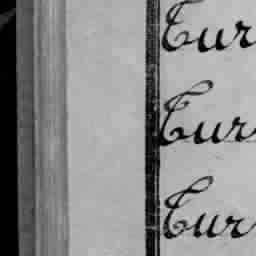 Tur
Tur
Tur